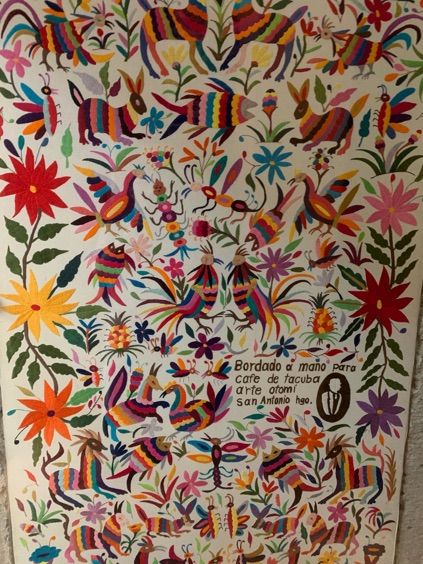 Bordado a mano para
cafe de tacuba
arte otomí
san Antonio hgo.